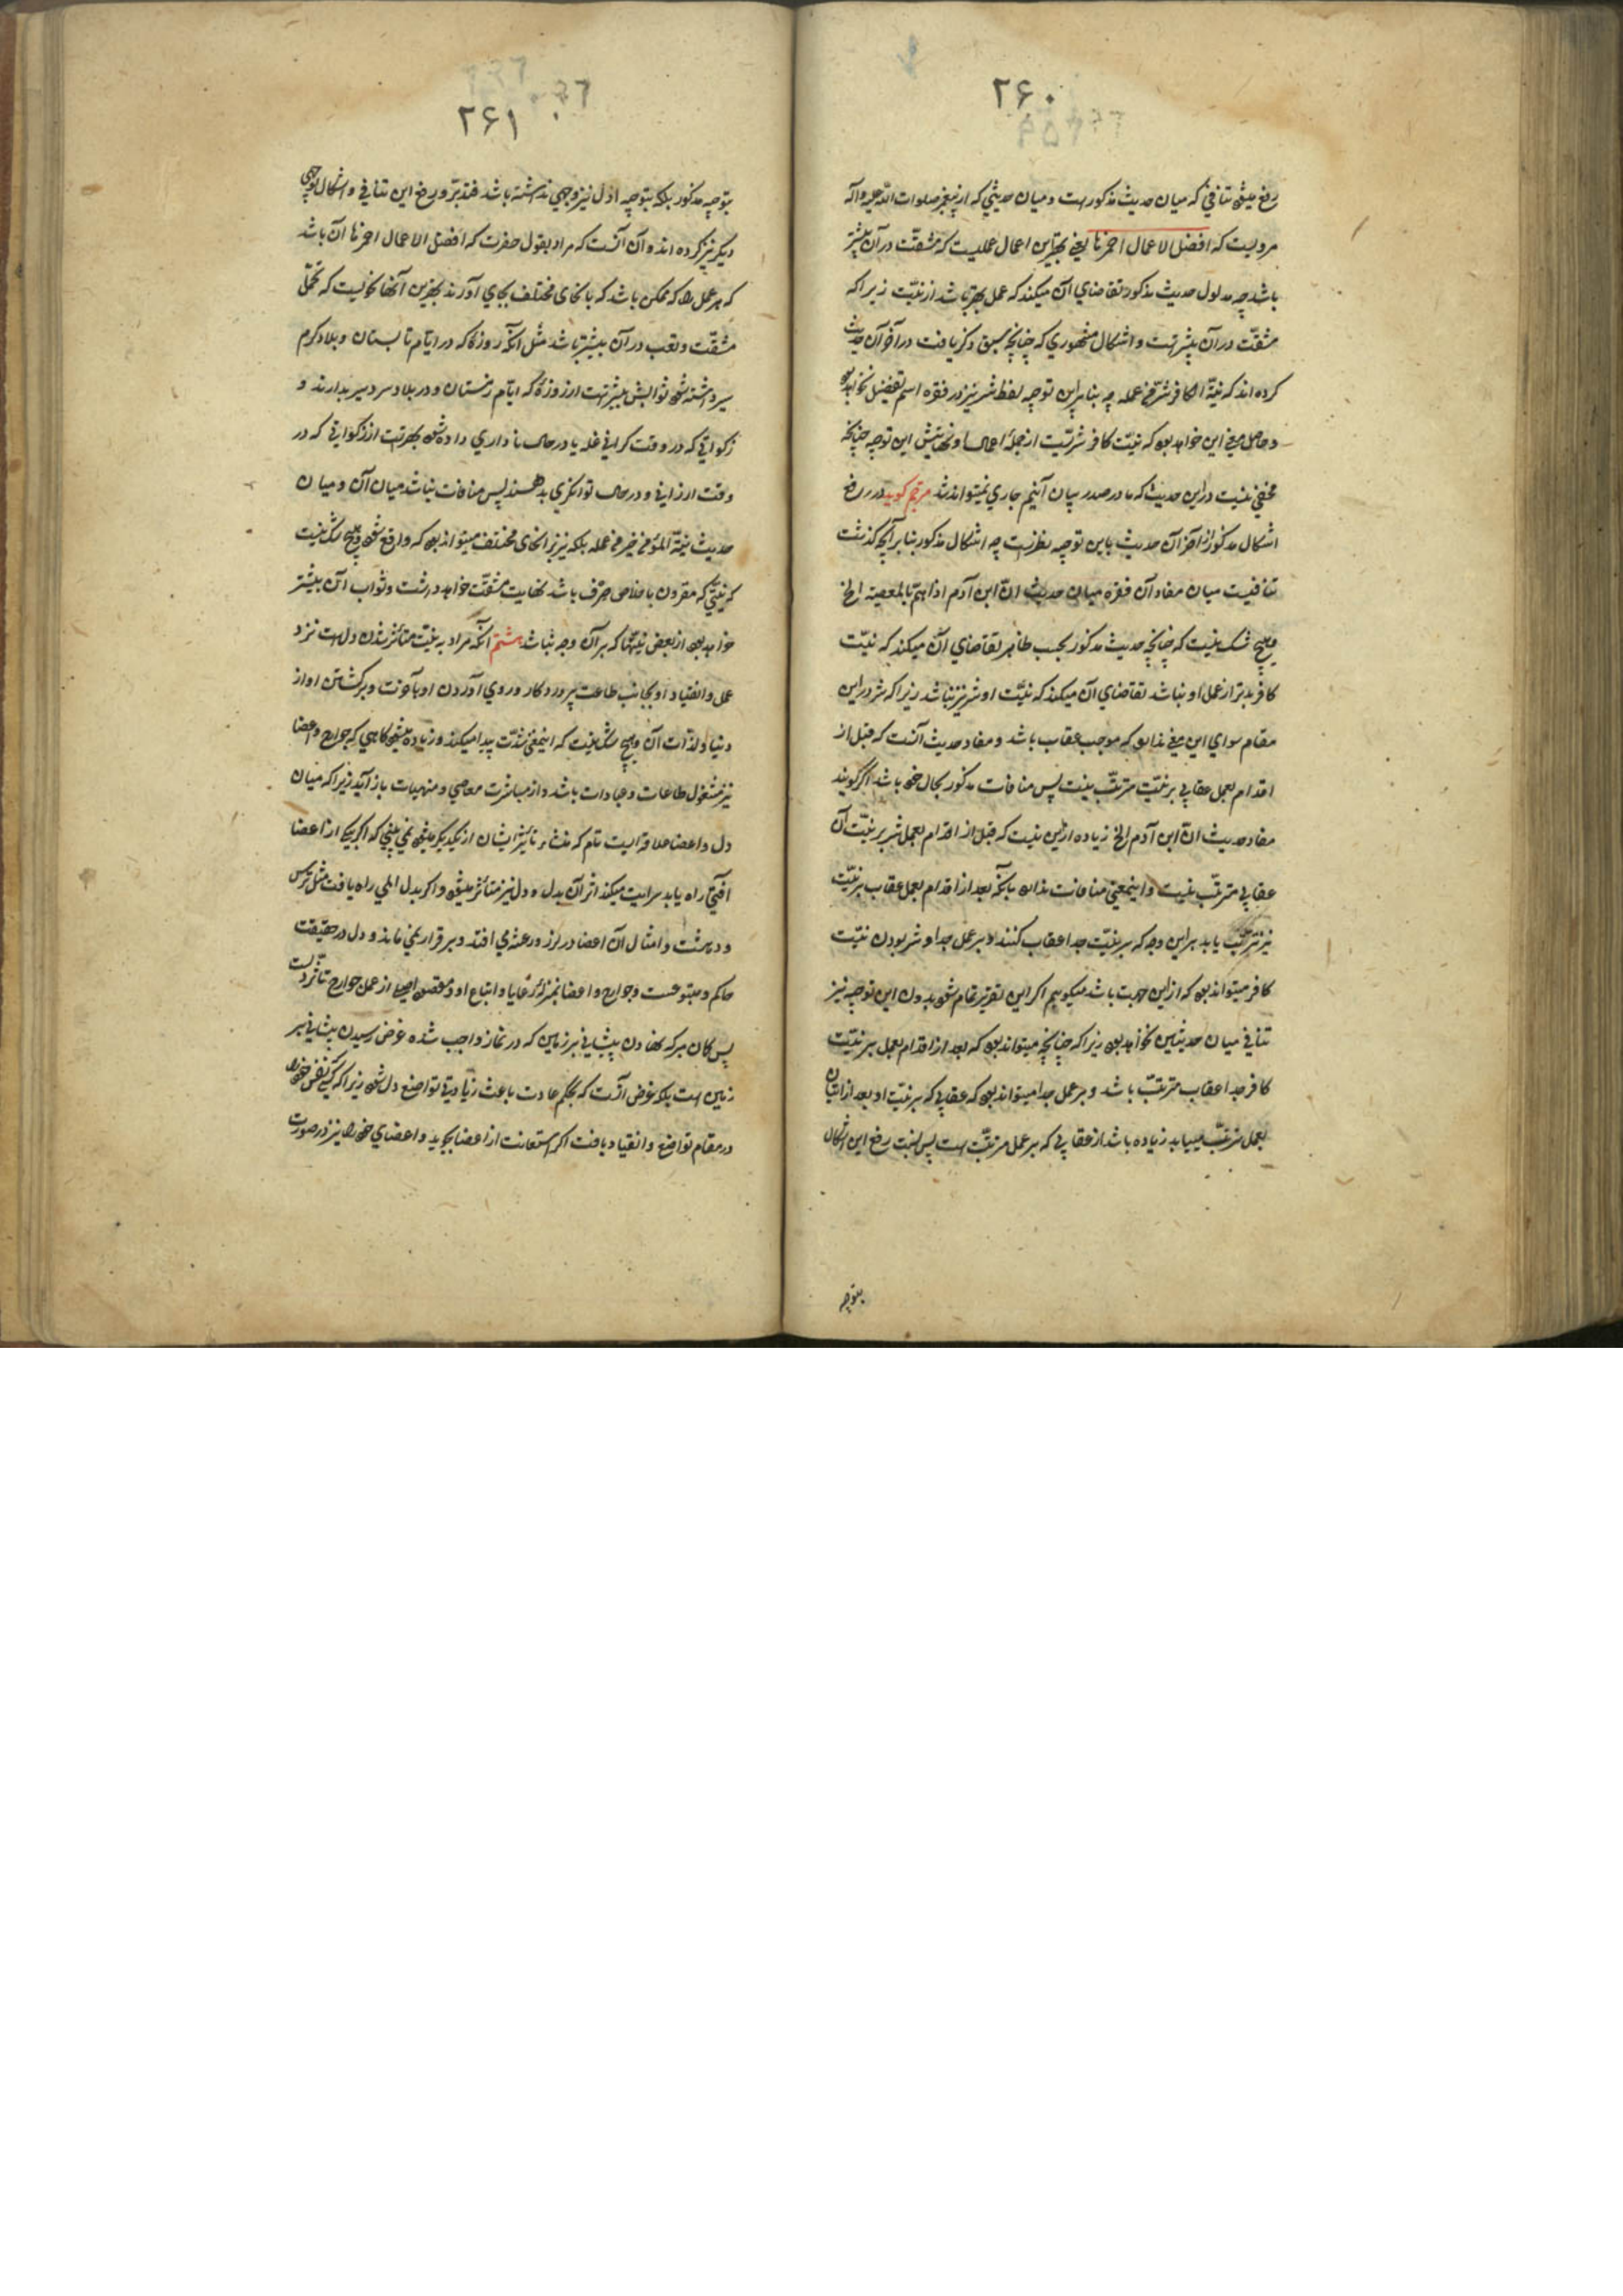 ۲۶۰
رفع میشود تنافی که میان حدیث مذکور است و میان حدیثی که از پیغمبر صلوات الله علیه و آله
مرویست که افضل الاعمال احمزها یعنی بهترین اعمال عملیست که مشقت در آن بیشتر
باشد چه مدلول حدیث مذکور تقاضای آن میکند که عمل بهتر باشد از نیت زیرا که
مشقت در آن بیشتر است و اشکال مشهوری که چنانچه سبق ذکر یافت در آخر آن حدیث
کرده اند که نیة الکافر شر من عمله چه بنا بر این توجیه لفظ شر نیز در فقره اسم تفضیل نخواهد بود
و حاصل معنی این خواهد بود که نیت کافر شریست از جمله اعمال او نهایتش این توجیه چنانچه
مخفی نیست در این حدیث که ما در صدد بیان آنیم جاری نمیتواند شد مترجم گوید در رفع
اشکال مذکور از آخر آن حدیث باین توجیه نظر است چه اشکال مذکور بنا بر آنچه گذشت
تنافیست میان مفاد آن فقره و میان حدیث ان ابن آدم اذا هم بالمعصیة الخ
و هیچ شک نیست که چنانچه حدیث مذکور بحسب ظاهر تقاضای آن میکند که نیت
کافر بدتر از عمل او نباشد تقاضای آن میکند که نیت او شر نیز نباشد زیرا که شر در این
مقام سوای این معنی ندارد که موجب عقاب باشد و مفاد حدیث آنست که قبل از
اقدام بعمل عقابی بر نیت مترتب نیست پس منافات مذکور بحال خود باشد اگر گویند
مفاد حدیث ان ابن آدم الخ زیاده از این نیست که قبل از اقدام بعمل شر بر نیت آن
عقابی مترتب نیست و اینمعنی منافات ندارد بآنکه بعد از اقدام بعمل عقاب بر نیت
نیز ترتب یابد براین وجه که بر نیت جدا عقاب کنند و بر عمل جدا و شر بودن نیت
کافر میتواند بود که از این جهت باشد میگوییم اگر این تقریر تمام شود بدون این توجیه نیز
تنافی میان حدیثین نخواهد بود زیرا که چنانچه میتواند بود که بعد از اقدام بعمل بر نیت
کافر جدا عقاب مترتب باشد و بر عمل جدا میتواند بود که عقابی که بر نیت او بعد از اتیان
بعمل مترتب میباید زیاده باشد از عقابی که بر عمل مترتب است پس نسبت رفع این اشکال
بتوجیه
۲۶۱
بتوجیه مذکور بلکه بتوجیه اول نیز وجهی نداشته باشد فتدبر و رفع این تنافی و اشکال بوجهی
دیگر نیز کرده اند و آن آنست که مراد بقول حضرت که افضل الاعمال احمزها آن باشد
که هر عمل را که ممکن باشد که بانحای مختلف بجای آورند بهترین آنها نحویست که تحمل
مشقت و تعب در آن بیشتر باشد مثل آنکه روزه که در ایام تابستان و بلاد گرم
سیر داشته شود ثوابش بیشتر است از روزه که ایام زمستان و در بلاد سردسیر بدارند و
زکواتی که در وقت گرانی غله یا در حال ناداری داده شود بهتر است از زکواتی که در
وقت ارزانی و در حال توانگری بدهند پس منافات نباشد میان آن و میان
حدیث نیة المؤمن خیر من عمله بلکه نیز بر انحای مختلف میتواند بود که واقع شود و هیچ شک نیست
که نیتی که مقرون باخلاص صرف باشد نهایت مشقت خواهد داشت و ثواب آن بیشتر
خواهد بود از بعض نیتها که بر آن وجه نباشد هشتم آنکه مراد به نیت متأثر شدن دل است نزد
عمل و انقیاد او بجانب طاعت پروردگار و روی آوردن او بآخرت و برگشتن او از
دنیا و لذات آن و هیچ شک نیست که اینمعنی شدت پیدا میکند و زیاده میشود گاهی که جوارح و اعضا
نیز مشغول طاعات و عبادات باشد و از مباشرت معاصی و منهیات باز آید زیرا که میان
دل و اعضا علاقه ایست تام که منشاء تأثر ایشان از یکدیگر میشود نمی بینی که اگر یکی از اعضا
آفتی راه یابد سرایت میکند اثر آن بدل و دل نیز متأثر میشود و اگر بدل المی راه یافت مثل ترس
و دهشت و امثال آن اعضا در لرز و رعشه می افتد و برقرار نمی ماند و دل در حقیقت
حاکم و متبوعست و جوارح و اعضا بمنزله رعایا و اتباع او و مقصود اصلی از عمل جوارح تأثر دلست
پس گمان مبر که نهادن پیشانی بر زمین که در نماز واجب شده غرض رسیدن پیشانی بر
زمین است بلکه غرض آنست که بحکم عادت باعث زیادتی تواضع دل شود زیرا که کسی که نفس خود را
در مقام تواضع و انقیاد یافت اگر استعانت از اعضا بجوید و اعضای خود را نیز در صورت